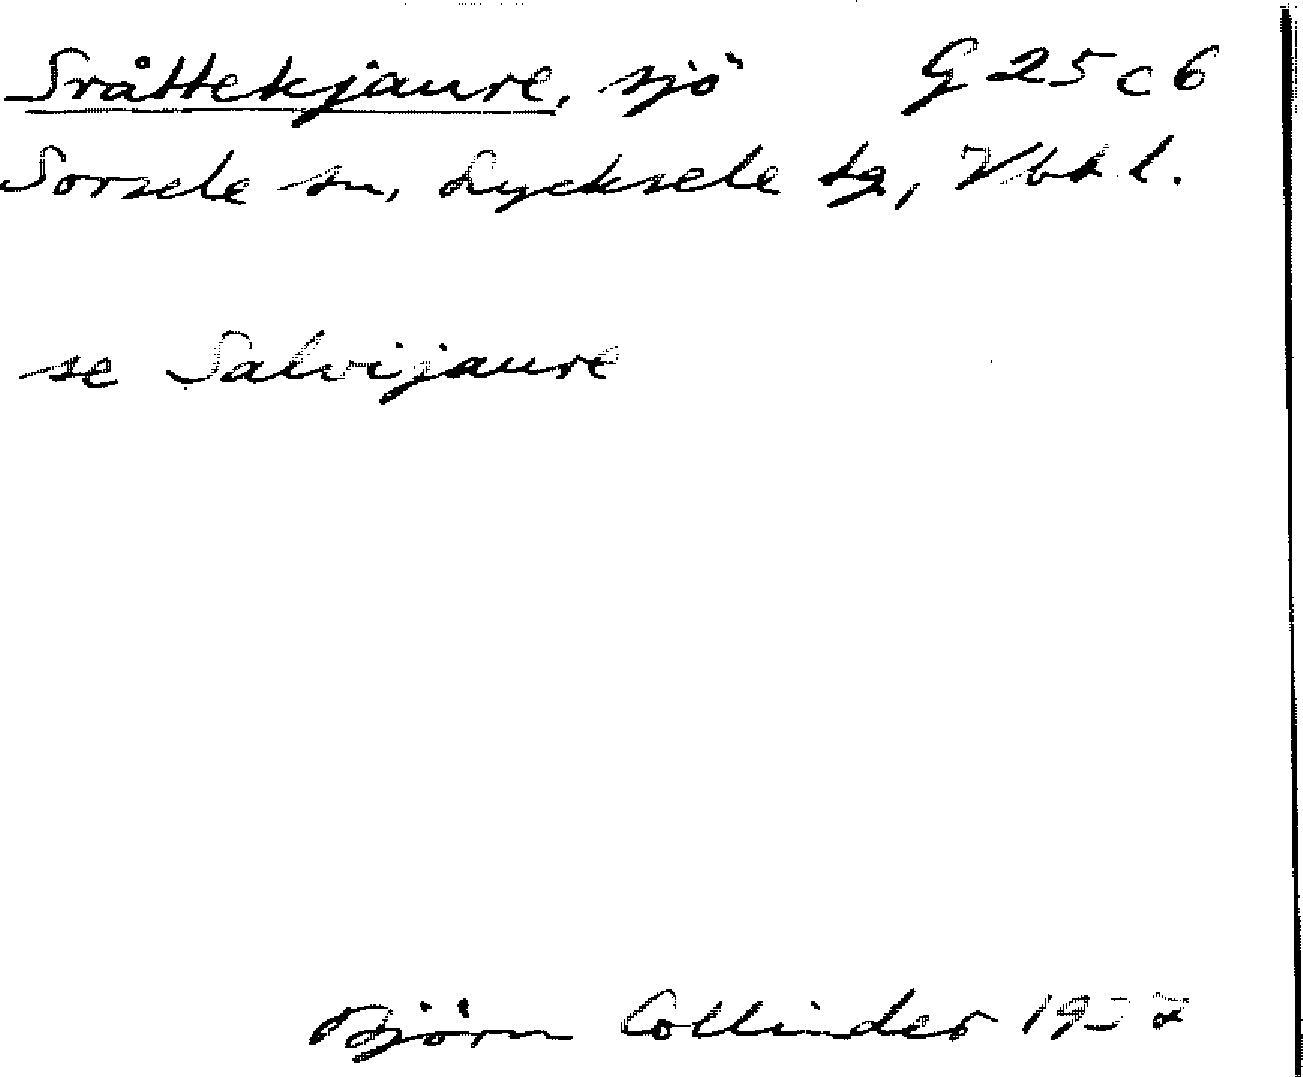 Sråttekjaure, sjö G 25 c 6
Sorsele sn, Lycksele lg, Vbt l.
se Salvijaure
Björn Collinder